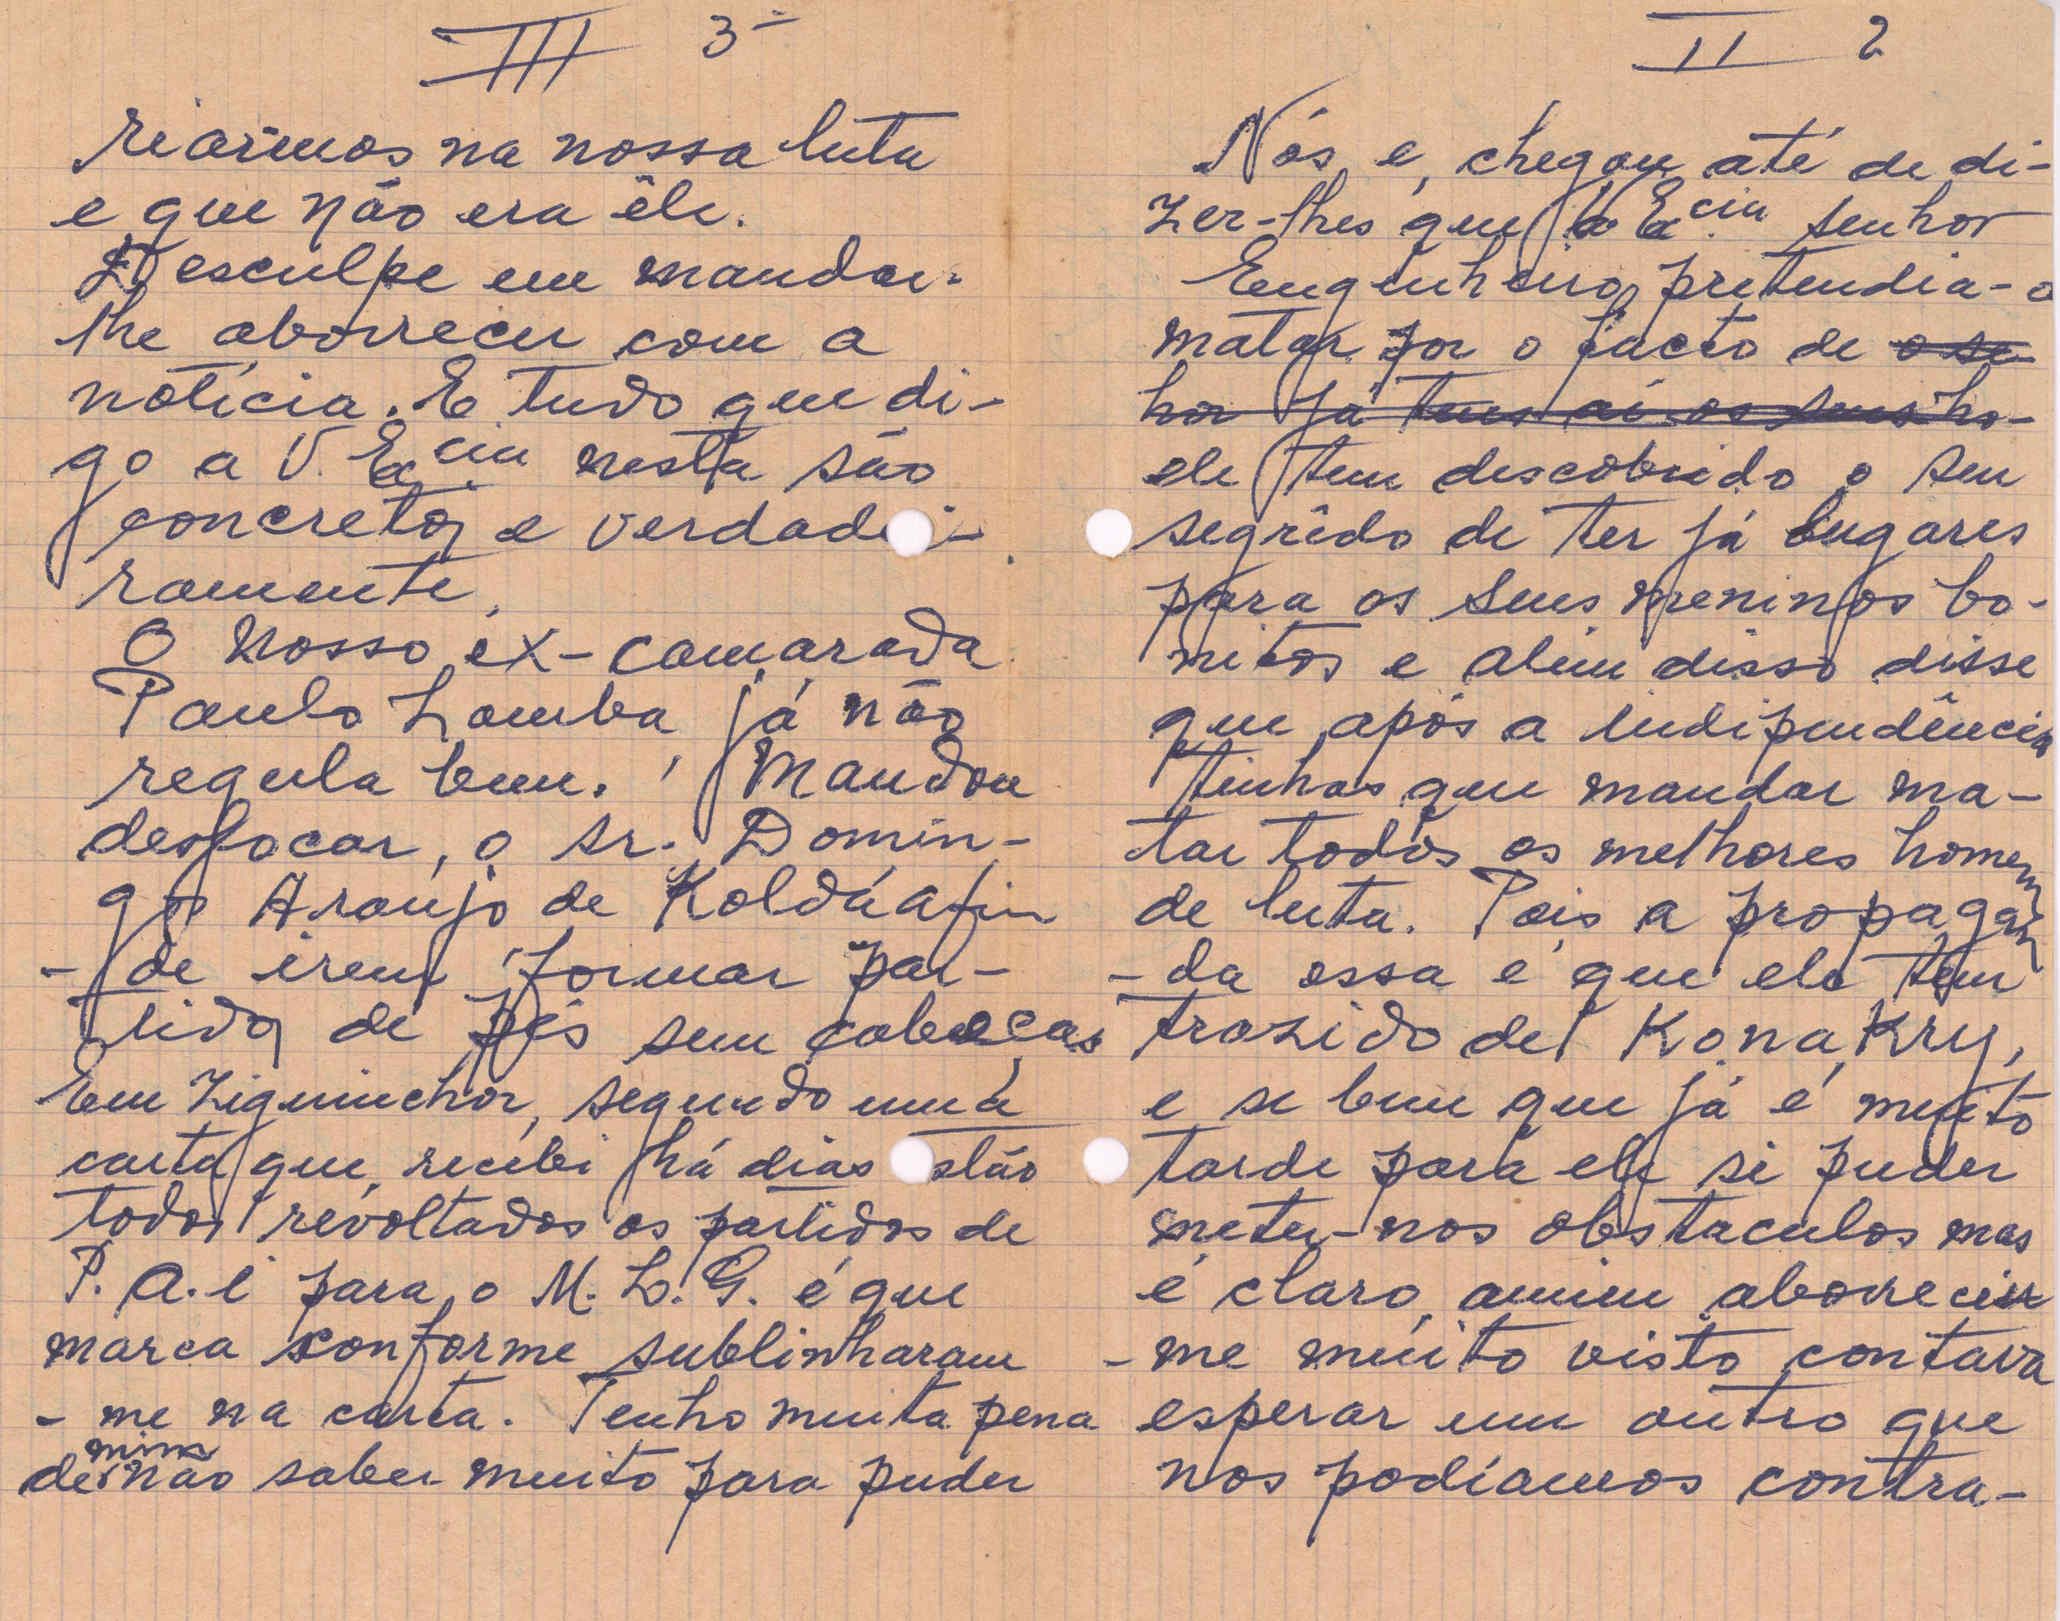 II 2
Nós e, chegou até de di-
zer-lhes que V. Ex.cia senhor
Engenheiro, pretendia-o
matar por o facto de o se
hor já tens aí os seus ho-
ele tem descobrido o seu
segrêdo de ter já lugares
para os seus meninos bo-
nitos e além disso disse
que após a indipendência
tinhas que mandar ma-
tar todos os melhores homens
de luta. Pois a propagan
-da essa é que ele tem
trazido de Konakry,
e se bem que já é muito
tarde para ele si puder
meter-nos obstaculos mas
é claro, amim aborrecer
-me muito visto contava
esperar um outro que
nos podíamos contra-
III 3-
riarmos na nossa luta
e que não era êle.
Desculpe em mandar-
lhe aborrecer com a
notícia. E tudo que di-
go a V. Ex.cia nesta são
concretos e verdadei-
ramente.
O Nosso ex-camarada
Paulo Lomba já não
regula bem. Mandou
deslocar, o sr. Domin-
gos Araújo de Koldá afim
- de irem formar par-
tidos de pés sem cabeças
Em Ziguinchor, segundo uma
carta que recebi há dias estão
todos revoltados os partidos de
P. A. i para o M. L. G. é que
marca conforme sublinharam
- me na carta. Tenho muita pena
de mim não saber muito para puder